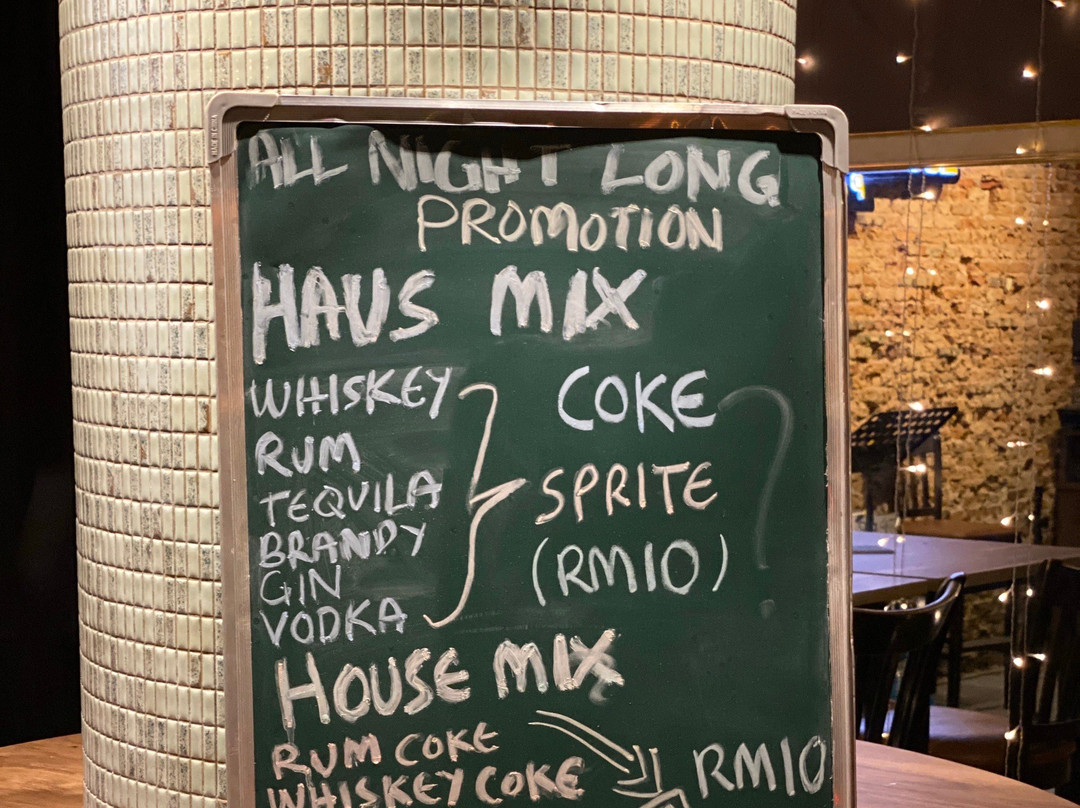 ALL NIGHT LONG
PROMOTION
HAUS MIX
WHISKEY COKE ?
RUM
TEQUILA SPRITE
BRANDY
GIN (RM10)
VODKA
HOUSE MIX
RUM COKE
WHISKEY COKE RM10